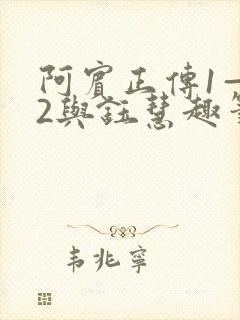 阿賓正傳1—
2與鈺慧趣
韦兆寧